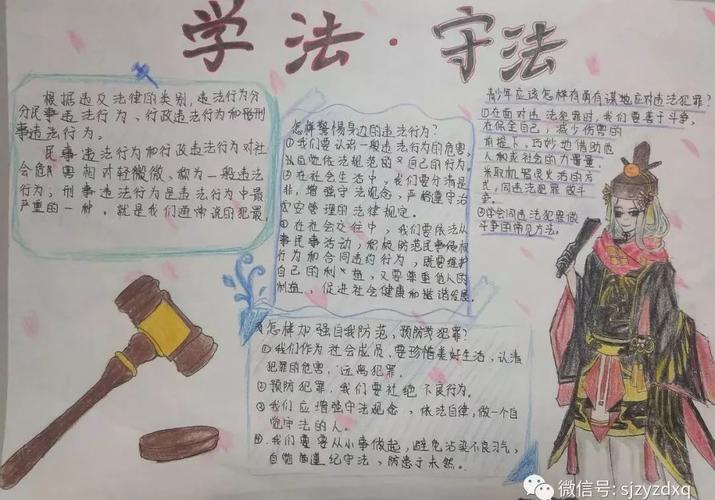 学法·守法
根据违反法律的类别，违法行为分
分民事违法行为、行政违法行为和刑
事违法行为。
民事违法行为和行政违法行为对社
会危害相对轻微，称为一般违法
行为；刑事违法行为是违法行为中最
严重的一种，就是我们通常说的犯罪
怎样警惕身边的违法行为？
①我们要认识一般违法行为的危害，
自觉依法规范的自己的行为。
②在社会生活中，我们要分清是
非，增强守法观念，严格遵守治
安管理的法律规定。
③在社会交往中，我们要依法从
事民事活动，积极防范民事侵权
行为和合同违约行为，既要维护
自己的利益，又要尊重他人的
利益，促进社会健康和谐发展。
青少年应该怎样有勇有谋地应对违法犯罪？
①在面对违法犯罪时，我们要善于斗争，
在保全自己，减少伤害的
前提下，巧妙地借助他
人或社会的力量，
采取机智灵活的方
式，同违法犯罪做斗
争。
②学会同违法犯罪做
斗争的常见方法。
怎样加强自我防范，预防犯罪？
①我们作为社会成员，要珍惜美好生活，认清
犯罪的危害，远离犯罪。
②预防犯罪，我们要杜绝不良行为。
③我们应增强守法观念，依法自律，做一个自
觉守法的人。
④我们要从小事做起，避免沾染不良习气，
自觉遵纪守法，防患于未然。
微信号: sjzyzdxq